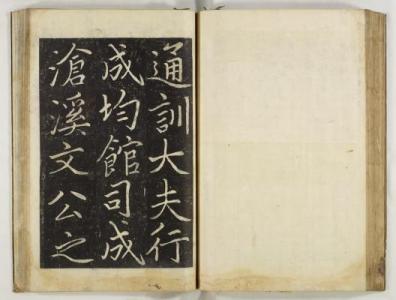 通訓大夫行
成均館司成
滄溪文公之